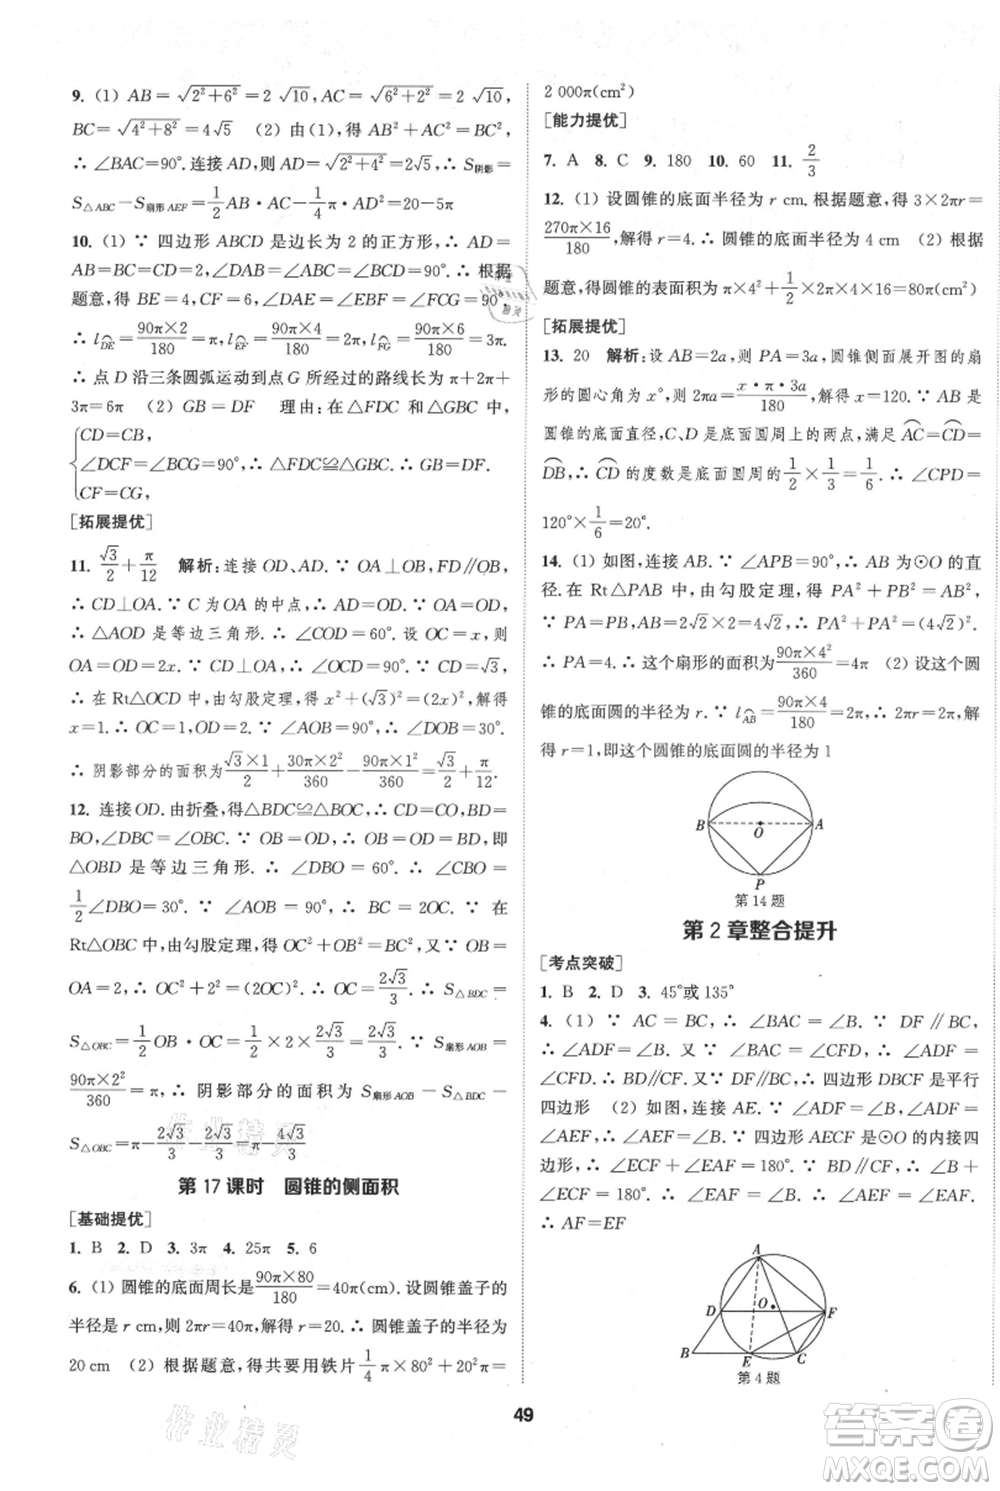 9. (1) AB=√(2²+6²)=2√10, AC=√(2²+6²)=2√10,
BC=√(4²+8²)=4√5 (2) 由(1),得 AB²+AC²=BC²,
∴ ∠BAC=90°. 连接 AD,则 AD=√(2²+4²)=2√5,∴ S阴影=
S△ABC−S扇形AEF=1/2 AB·AC−1/4 π·AD²=20−5π
10. (1) ∵ 四边形 ABCD 是边长为 2 的正方形,∴ AD=
AB=BC=CD=2,∠DAB=∠ABC=∠BCD=90°. ∴ 根据
题意,得 BE=4,CF=6,∠DAE=∠EBF=∠FCG=90°.
∴ l⌒DE=90π×2/180=π,l⌒EF=90π×4/180=2π,l⌒FG=90π×6/180=3π.
∴ 点 D 沿三条圆弧运动到点 G 所经过的路线长为 π+2π+
3π=6π (2) GB=DF 理由:在△FDC 和△GBC 中,
{CD=CB,
∠DCF=∠BCG=90°,∴ △FDC≌△GBC. ∴ GB=DF.
CF=CG
[拓展提优]
11. √3/2+π/12 解析:连接 OD、AD. ∵ OA⊥OB,CD∥OB,
∴ CD⊥OA. ∵ C 为 OA 的中点,∴ AD=OD. ∵ OA=OD,
∴ △AOD 是等边三角形. ∴ ∠COD=60°. 设 OC=x,则
OA=OD=2x. ∵ △AOD 是等边三角形,CD⊥OA,CD=√3,
∴ 在 Rt△OCD 中,由勾股定理,得 x²+(√3)²=(2x)²,解得
x=1. ∴ OC=1,OA=OD=2. ∵ ∠AOB=90°,∴ ∠BOD=30°.
∴ 阴影部分的面积为√3×1/2+30π×2²/360−90π×1²/360=√3/2+π/12.
12. 连接 OD. 由折叠,得△BDC≌△BOC,∴ CD=CO,BD=
BO,∠DBC=∠OBC. ∵ OB=OD,∴ OB=OD=BD,即
△OBD 是等边三角形. ∴ ∠DBO=60°. ∴ ∠CBO=
1/2∠DBO=30°. ∵ ∠AOB=90°,∴ BC=2OC. ∴ 在
Rt△OBC 中,由勾股定理,得 OC²+OB²=BC²,又∵ OB=
OA=2,∴ OC²+2²=(2OC)². ∴ OC=2√3/3. ∴ S△BDC=
S△OBC=1/2OB·OC=1/2×2×2√3/3=2√3/3. ∵ S扇形AOB=
90π×2²/360=π,∴ 阴影部分的面积为 S扇形AOB−S△BDC−
S△OBC=π−2√3/3−2√3/3=π−4√3/3
第 17 课时 圆锥的侧面积
[基础提优]
1. B 2. D 3. 3π 4. 25π 5. 6
6. (1) 圆锥的底面周长是90π×80/180=40π(cm). 设圆锥盖子的
半径是 r cm,则 2πr=40π,解得 r=20. ∴ 圆锥盖子的半径为
20 cm (2) 根据题意,得共要用铁片1/4π×80²+20²π=
2 000π(cm²)
[能力提优]
7. A 8. C 9. 180 10. 60 11. 2/3
12. (1) 设圆锥的底面半径为 r cm. 根据题意,得 3×2πr=
270π×16/180,解得 r=4. ∴ 圆锥的底面半径为 4 cm (2) 根据
题意,得圆锥的表面积为 π×4²+1/2×2π×4×16=80π(cm²)
[拓展提优]
13. 20 解析:设 AB=2a,则 PA=3a,圆锥侧面展开图的扇
形的圆心角为 x°,则 2πa=x·π·3a/180,解得 x=120. ∵ AB 是
圆锥的底面直径,C、D 是底面圆周上的两点,满足⌒AC=⌒CD=
⌒DB,∴ ⌒CD的度数是底面圆周的1/2×1/3=1/6. ∴ ∠CPD=
120°×1/6=20°.
14. (1) 如图,连接 AB. ∵ ∠APB=90°,∴ AB 为⊙O 的直
径. 在 Rt△PAB 中,由勾股定理,得 PA²+PB²=AB².
∵ PA=PB,AB=2√2×2=4√2,∴ PA²+PA²=(4√2)².
∴ PA=4. ∴ 这个扇形的面积为90π×4²/360=4π (2) 设这个圆
锥的底面圆的半径为 r. ∵ l⌒AB=90π×4/180=2π,∴ 2πr=2π,解
得 r=1,即这个圆锥的底面圆的半径为 1
B O A
P
第 14 题
第 2 章整合提升
[考点突破]
1. B 2. D 3. 45°或 135°
4. (1) ∵ AC=BC,∴ ∠BAC=∠B. ∵ DF∥BC,
∴ ∠ADF=∠B. 又∵ ∠BAC=∠CFD,∴ ∠ADF=
∠CFD. ∴ BD∥CF. ∴ 四边形 DBCF 是平行
四边形 (2) 如图,连接 AE. ∵ ∠ADF=∠B,∠ADF=
∠AEF,∴ ∠AEF=∠B. ∵ 四边形 AECF 是⊙O 的内接四
边形,∴ ∠ECF+∠EAF=180°. ∵ BD∥CF,∴ ∠B
+∠ECF=180°. ∴ ∠EAF=∠B. ∴ ∠AEF=∠EAF.
∴ AF=EF
A
D O F
B E C
第 4 题
49
作业精灵
答案卷
MXQE.COM